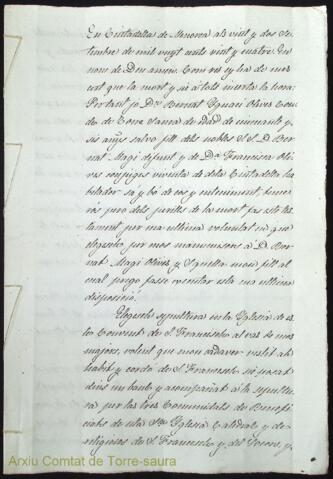 En Ciutadella de Menorca als vint y dos Se-
tembre de mil vuyt cents vint y cuatre. En
nom de Deu amen. Com res hy ha de mes
cert que la mort y si á tots incerta la hora:
Pertant jo Dn. Bernat Ygnaci Olives Con-
de de Torre Saura de edad de cincuanta y
sis añys salvo fill dels nobles S.S. D. Ber-
nat Magi difunt y de Da. Francisca Oli-
ves conjuges viventa de dita Ciutadella ha-
bitador sa y bo de cos y enteniment, temo-
rós pero dels perills de la mort fas este tes-
tament per ma ultima voluntat en que
elegesch per mos manumisors á D. Ber-
nat Magi Olives y Squella mon fill al
qual prego fasse executar esta ma ultima
disposició.
Elegesch sepultura en la Yglesia de es-
te Convent de S. Francisco al vas de mos
majors, volent que mon cadaver vestit ab
habit y corda de S. Francisco sie posat
dins un baul y acompañat á la sepultu-
ra per las tres Comunidats de Benefi-
ciats de esta Sta. Yglesia Catedral y de
religiosos de S. Francisco y del Socos, y
Arxiu Comtat de Torre-saura